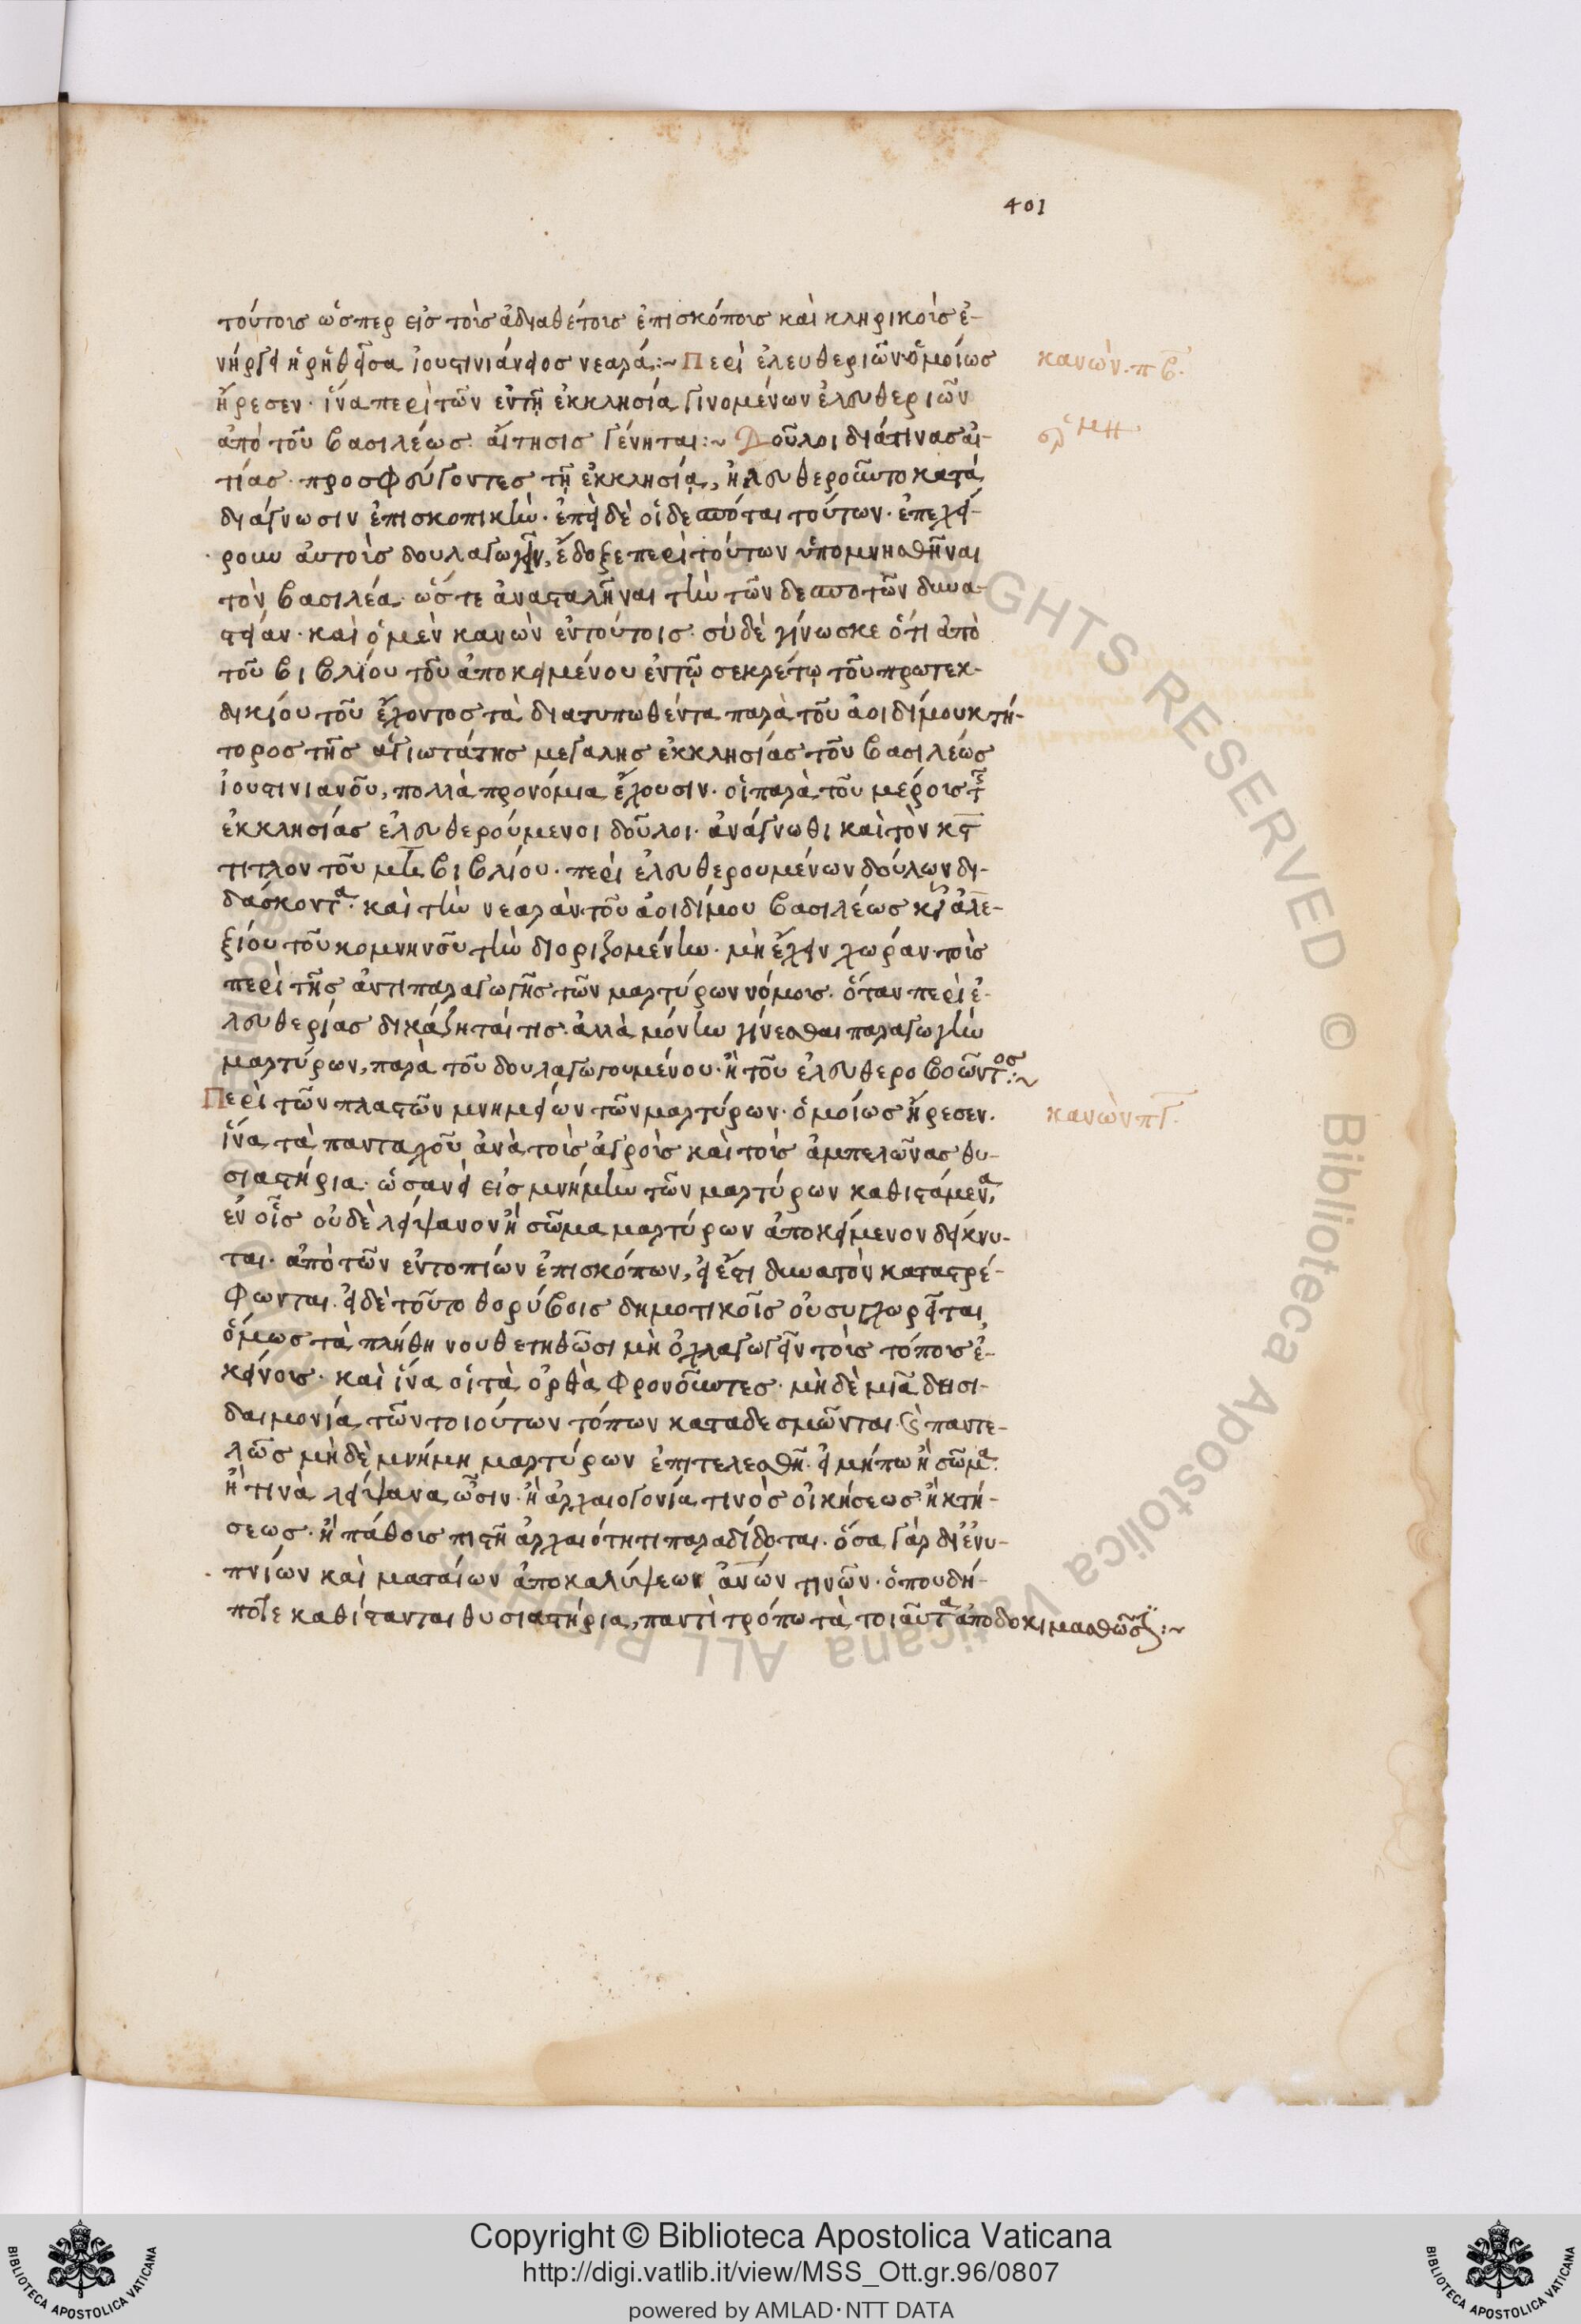 401
τούτοις ὥσπερ εἰς τοὺς ἀδιαθέτους ἐπισκόποις καὶ κληρικοὺς ἐ-
νήργει ἡ ῥηθεῖσα ἰουστινιάνειος νεαρά:~ Περὶ ἐλευθεριῶν· ὁμοίως
κανὼν· πβ·
ἤρεσεν· ἵνα περὶ τῶν ἐν τῇ ἐκκλησία γινομένων ἐλευθεριῶν
ἀπὸ τοῦ βασιλέως αἴτησις γένηται:~ Δοῦλοι διά τινας αἰ-
τίας προσφεύγοντες τῇ ἐκκλησίᾳ, ἠλευθεροῦντο κατὰ
διάγνωσιν ἐπισκοπικὴν· ἐπεὶ δὲ οἱ δεσπόται τούτων· ἐπεχεί-
ρουν αὐτοὺς δουλαγωγεῖν, ἔδοξε περὶ τούτων ὑπομνησθῆναι
τὸν βασιλέα· ὥστε ἀνασταλῆναι τὴν τῶν δεσποτῶν δυνα-
στείαν· καὶ ὁ μὲν κανὼν ἐν τούτοις· σὺ δὲ γίνωσκε ὅτι ἀπὸ
τοῦ βιβλίου τοῦ ἀποκειμένου ἐν τῷ σεκρέτῳ τοῦ πρωτεκ-
δικίου τοῦ ἔχοντος τὰ διατυπωθέντα παρὰ τοῦ ἀοιδίμου κτή-
τορος τῆς ἁγιωτάτης μεγάλης ἐκκλησίας τοῦ βασιλέως
ἰουστινιανοῦ, πολλὰ προνόμια ἔχουσιν· οἱ παρὰ τοῦ μέρους τῆς
ἐκκλησίας ἐλευθερούμενοι δοῦλοι· ἀνάγνωθι καὶ τὸν κς
τίτλον τοῦ μη βιβλίου· περὶ ἐλευθερουμένων δούλων δι-
δάσκοντα· καὶ τὴν νεαρὰν τοῦ ἀοιδίμου βασιλέως κυροῦ ἀλε-
ξίου τοῦ κομνηνοῦ τὴν διοριζομένην· μὴ ἔχειν χώραν τοὺς
περὶ τῆς ἀντιπαραγωγῆς τῶν μαρτύρων νόμους· ὅταν περὶ ἐ-
λευθερίας δικάζηταί τις· ἀλλὰ μόνην γίνεσθαι παραγωγὴν
μαρτύρων, παρὰ τοῦ δουλαγωγουμένου· ἢ τοῦ ἐλευθεροβοῶντος:~
Περὶ τῶν πλαστῶν μνημείων τῶν μαρτύρων· ὁμοίως ἤρεσεν·
κανὼν πγ·
ἵνα τὰ πανταχοῦ ἀνὰ τοὺς ἀγροὺς καὶ τοὺς ἀμπελῶνας θυ-
σιαστήρια· ὡσανεὶ εἰς μνήμην τῶν μαρτύρων καθιστάμενα,
ἐν οἷς οὐδὲ λείψανον ἢ σῶμα μαρτύρων ἀποκείμενον δείκνυ-
ται· ἀπὸ τῶν ἐντοπίων ἐπισκόπων, εἰ ἔστι δυνατὸν καταστρέ-
φωνται· εἰ δὲ τοῦτο θορύβοις δημοτικοῖς οὐ συγχωρεῖται
ὅμως τὰ πλήθη νουθετηθῶσι μὴ ὀχλαγωγεῖν τοὺς τόπους ἐ-
κείνους· καὶ ἵνα οἱ τὰ ὀρθὰ φρονοῦντες· μὴ δὲ μιᾶ δεισι-
δαιμονία τῶν τοιούτων τόπων καταδεσμῶνται· καὶ παντε-
λῶς μὴ δὲ μνήμη μαρτύρων ἐπιτελεσθῆ· εἰ μήπω ἢ σῶμα
ἤ τινα λείψανα ὦσιν· ἢ ἀρχαιογονία τινὸς οἰκήσεως ἢ κτή-
σεως· ἢ πάθους πιστῆ ἀρχαιότητι παραδίδοται· ὅσα γὰρ δι' ἐνυ-
πνίων καὶ ματαίων ἀποκαλύψεων ἀνων τινῶν· ὁπουδή-
ποτε καθίστανται θυσιαστήρια, παντὶ τρόπω τὰ τοιαῦτα ἀποδοκιμασθῶσι:~
Copyright © Biblioteca Apostolica Vaticana
http://digi.vatlib.it/view/MSS_Ott.gr.96/0807
powered by AMLAD·NTT DATA